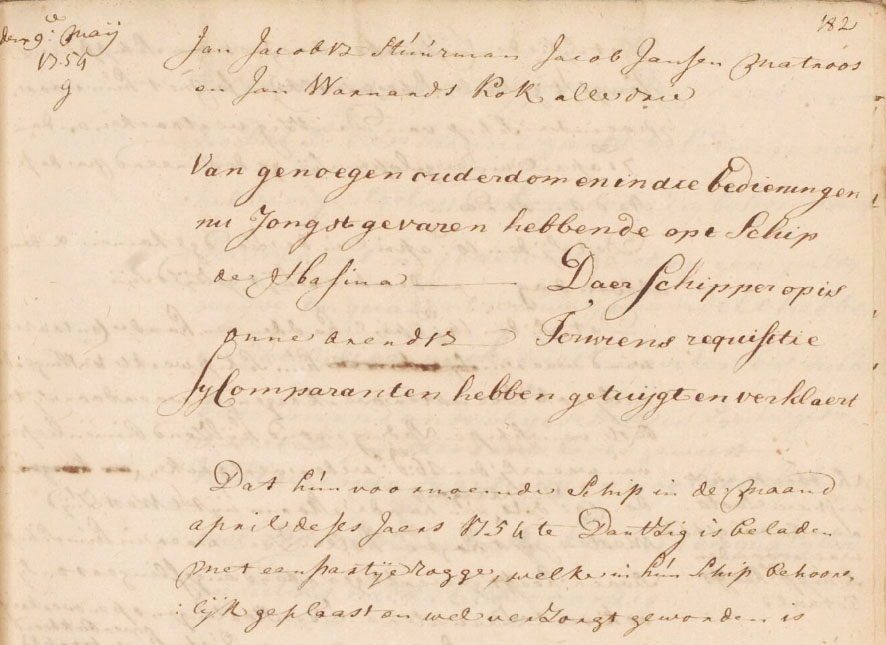 182
den 9.e Maij
1754
Jan Jacobsz Stuúrman Jacob Jansen Matroos
en Jan Warnards Kok alle drie
Van genoegen ouderdom en in die bedieningen
nu Jongst gevaren hebbende op't Schip
de
Daer Schipper op is
onne arendsz Terwiens requisitie
Sy Comparanten hebben getuijgt en verklaert
Dat hún voornoemde Schip in de Maand
april deses Jaers 1754 te Dantzig is beladen
met een partije rogge, welke in hún Schip behoor-
:lijk geplaast en wel verzorgt geworden is